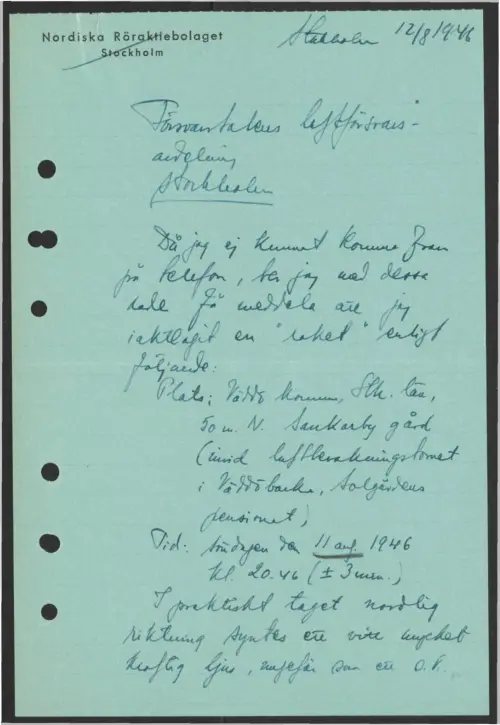 Nordiska Röraktiebolaget
Stockholm
Stockholm 12/8 1946
Försvarsstabens luftförsvars-
avdelning
Stockholm
Då jag ej kunnat komma fram
på telefon, ber jag med dessa
rader få meddela att jag
iakttagit en "raket" enligt
följande:
Plats: Väddö kommun, Sthlm. län,
50 m. N. Sankarby gård
(invid luftbevakningstornet
i Väddöbacka, Solgårdens
pensionat)
Tid: söndagen den 11 aug. 1946
kl. 20.46 (± 3 min.)
I praktiskt taget nordlig
riktning syntes ett vitt mycket
kraftig ljus, ungefär som en